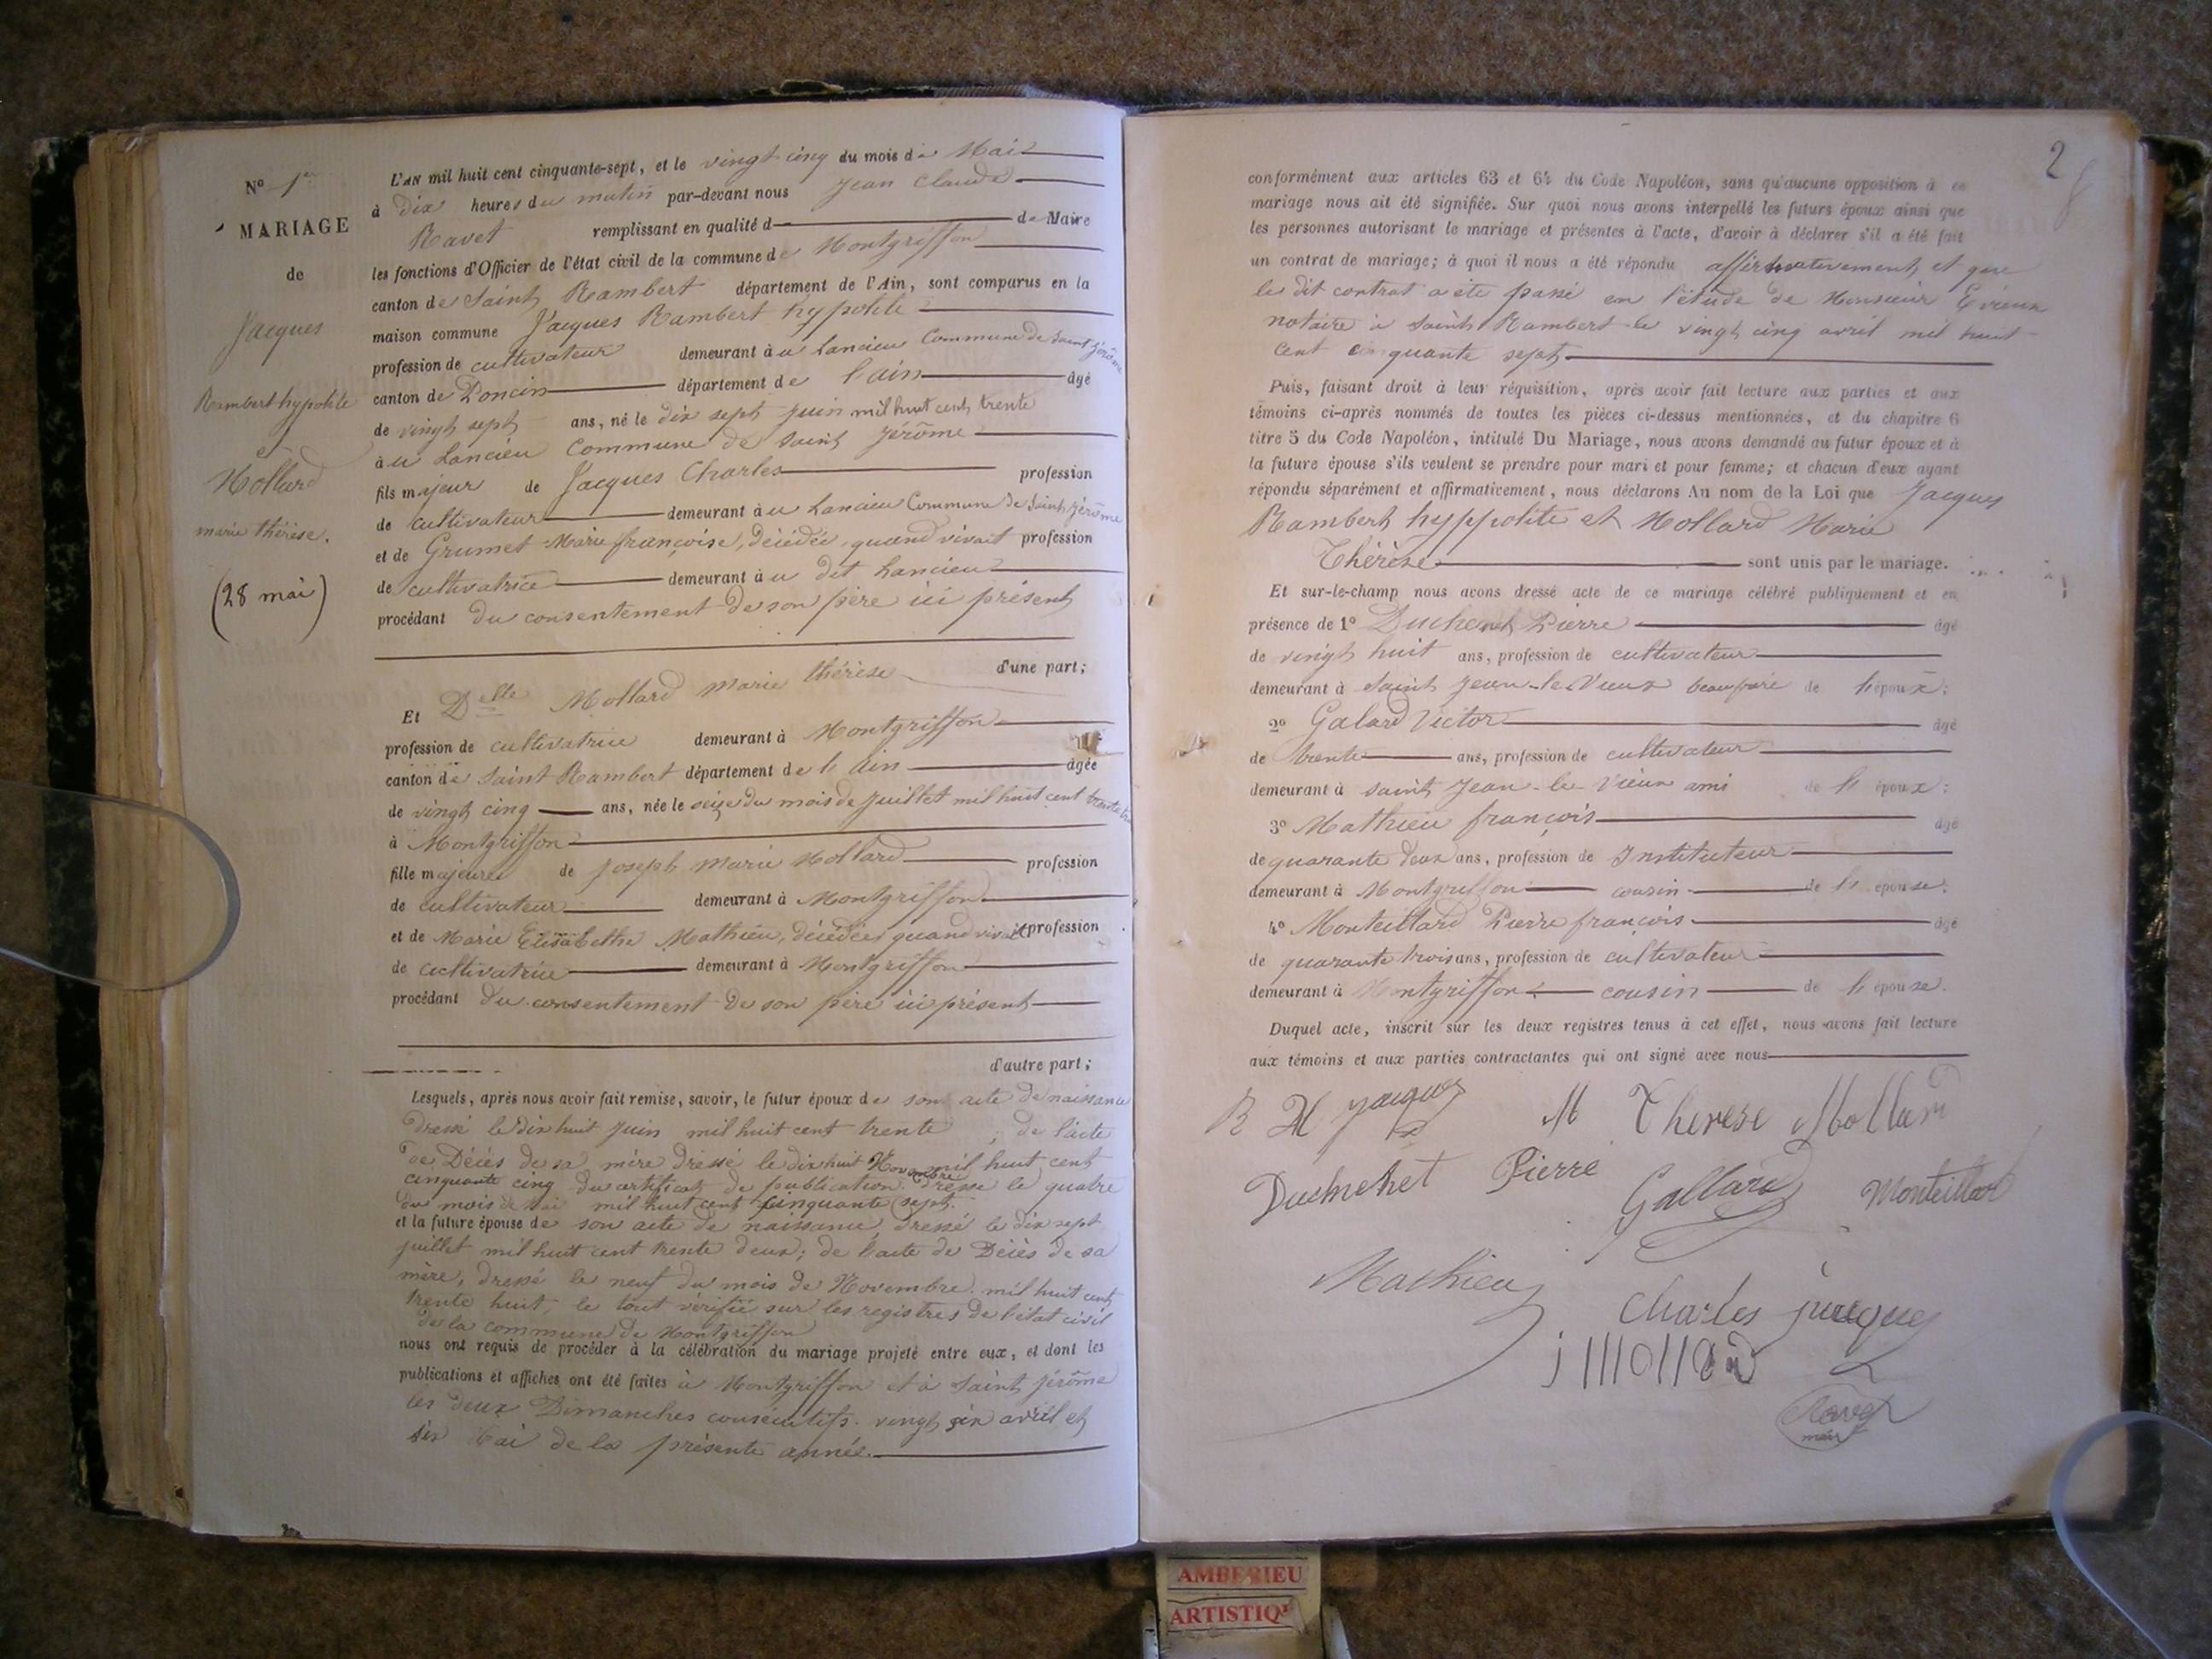 N° 1er
MARIAGE
de
Jacques
Rambert hypolite
et
Mollard
marie thérèse.
(28 mai)
L'AN mil huit cent cinquante-sept, et le vingt cinq du mois de Mai
à dix heures du matin par-devant nous Jean Claude
Ravet remplissant en qualité d de Maire
les fonctions d'Officier de l'état civil de la commune de Montgriffon
canton de Saint Rambert département de l'Ain, sont comparus en la
maison commune Jacques Rambert hypolite
profession de cultivateur demeurant àu Lancieu Commune de Saint Jérôme
canton de Poncin département de l'ain âgé
de vingt sept ans, né le dix sept juin mil huit cent trente
àu Lancieu Commune de Saint Jérôme
fils majeur de Jacques Charles profession
de cultivateur demeurant àu Lancieu Commune de Saint Jérôme
et de Grumet Marie françoise, décédée, quand vivait profession
de cultivatrice demeurant àu dit Lancieu
procédant du consentement de son père ici présent
d'une part;
Et Delle Mollard Marie thérèse
profession de cultivatrice demeurant à Montgriffon
canton de Saint Rambert département de l'Ain âgée
de vingt cinq ans, née le seize du mois de Juillet mil huit cent trente
à Montgriffon
fille majeure de Joseph Marie Mollard profession
de cultivateur demeurant à Montgriffon
et de Marie Elisabethe Mathieu, décédée, quand vivait profession
de cultivatrice demeurant à Montgriffon
procédant du consentement de son père ici présent
d'autre part;
Lesquels, après nous avoir fait remise, savoir, le futur époux de son acte de naissance
dressé le dix huit Juin mil huit cent trente, de l'acte
de Décès de sa mère dressé le dix huit Novembre mil huit cent
cinquante cinq du certificat de publication dressé le quatre
du mois de Mai mil huit cent cinquante sept.
et la future épouse de son acte de naissance, dressé le dix sept
juillet mil huit cent trente deux; de l'acte de Décès de sa
mère, dressé le neuf du mois de Novembre mil huit cent
trente huit; le tout vérifié sur les registres de l'état civil
de la commune de Montgriffon
nous ont requis de procéder à la célébration du mariage projeté entre eux, et dont les
publications et affiches ont été faites à Montgriffon et à Saint Jérôme
les deux Dimanches consécutifs. vingt six avril et
six Mai de la présente année.
2
conformément aux articles 63 et 64 du Code Napoléon, sans qu'aucune opposition à ce
mariage nous ait été signifiée. Sur quoi nous avons interpellé les futurs époux ainsi que
les personnes autorisant le mariage et présentes à l'acte, d'avoir à déclarer s'il a été fait
un contrat de mariage; à quoi il nous a été répondu affirmativement, et que
le dit contrat a été passé en l'étude de Monsieur Evieux
notaire à Saint Rambert le vingt cinq avril mil huit
cent cinquante sept
Puis, faisant droit à leur réquisition, après avoir fait lecture aux parties et aux
témoins ci-après nommés de toutes les pièces ci-dessus mentionnées, et du chapitre 6
titre 5 du Code Napoléon, intitulé Du Mariage, nous avons demandé au futur époux et à
la future épouse s'ils veulent se prendre pour mari et pour femme; et chacun d'eux ayant
répondu séparément et affirmativement, nous déclarons Au nom de la Loi que Jacques
Rambert hyppolite et Mollard Marie
Thérèse sont unis par le mariage.
Et sur-le-champ nous avons dressé acte de ce mariage célébré publiquement et en
présence de 1° Duchenet Pierre âgé
de vingt huit ans, profession de cultivateur
demeurant à Saint Jean-le-Vieux beaufrère de l'époux;
2° Galard Victor âgé
de trente ans, profession de cultivateur
demeurant à Saint Jean-le-Vieux ami de l'époux;
3° Mathieu françois âgé
de quarante deux ans, profession de Instituteur
demeurant à Montgriffon cousin de l'épouse;
4° Monteillard Pierre françois âgé
de quarante trois ans, profession de cultivateur
demeurant à Montgriffon cousin de l'épouse.
Duquel acte, inscrit sur les deux registres tenus à cet effet, nous avons fait lecture
aux témoins et aux parties contractantes qui ont signé avec nous
R H Jacques M Therese Mollard
Duchehet Pierre Gallard Monteillard
Mathieu
Charles jacques
j mollard
Ravet
maire
AMBERIEU
ARTISTIQ